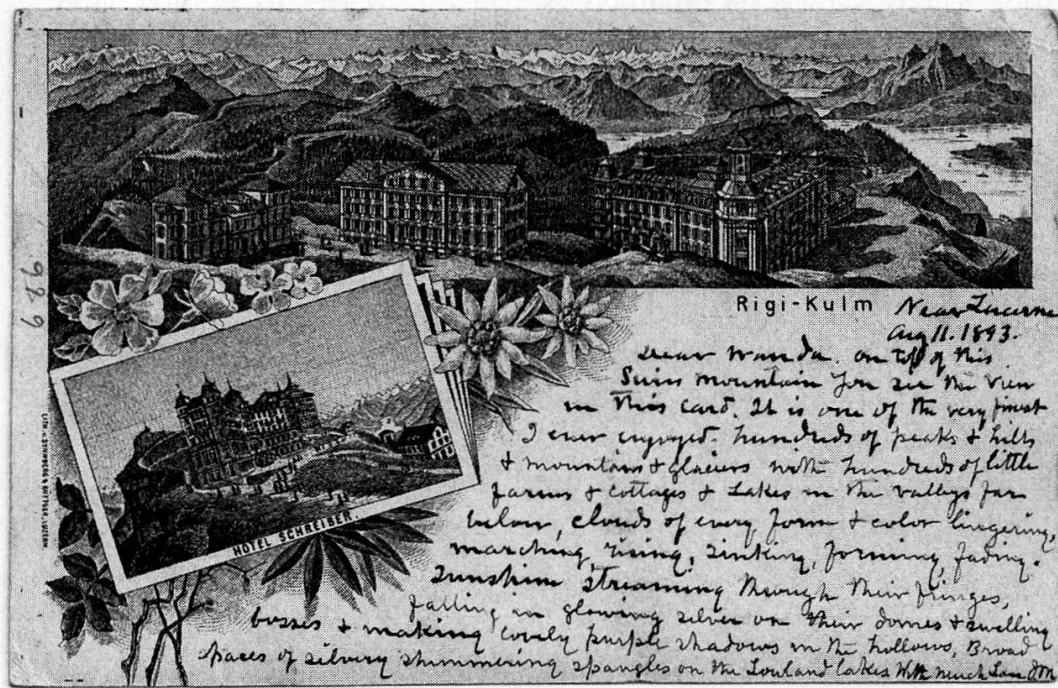 Rigi-Kulm
Near Lucerne
Aug 11. 1893.
Dear Wanda. on top of this
Swiss mountain you see the view
in this card. It is one of the very finest
I ever enjoyed. hundreds of peaks & hills
& mountains & glaciers with hundreds of little
farms & cottages & Lakes in the valleys far
below, clouds of every form & color lingering,
marching, rising, sinking, forming, fading.
Sunshine streaming through their fringes,
falling in glowing silver on their domes & swelling
bosses & making lovely purple shadows in the hollows, Broad
spaces of silvery shimmering spangles on the Lowland lakes With much Love
HOTEL SCHREIBER.
989